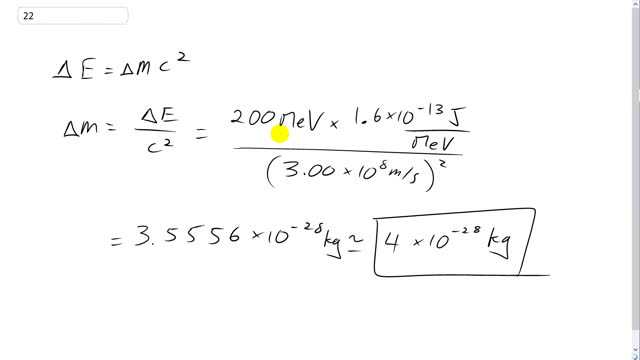 22
ΔE = Δmc²
Δm = ΔE/c² = 200 MeV × 1.6×10⁻¹³ J/MeV / (3.00×10⁸ m/s)²
= 3.5556×10⁻²⁸ kg ≃ 4×10⁻²⁸ kg